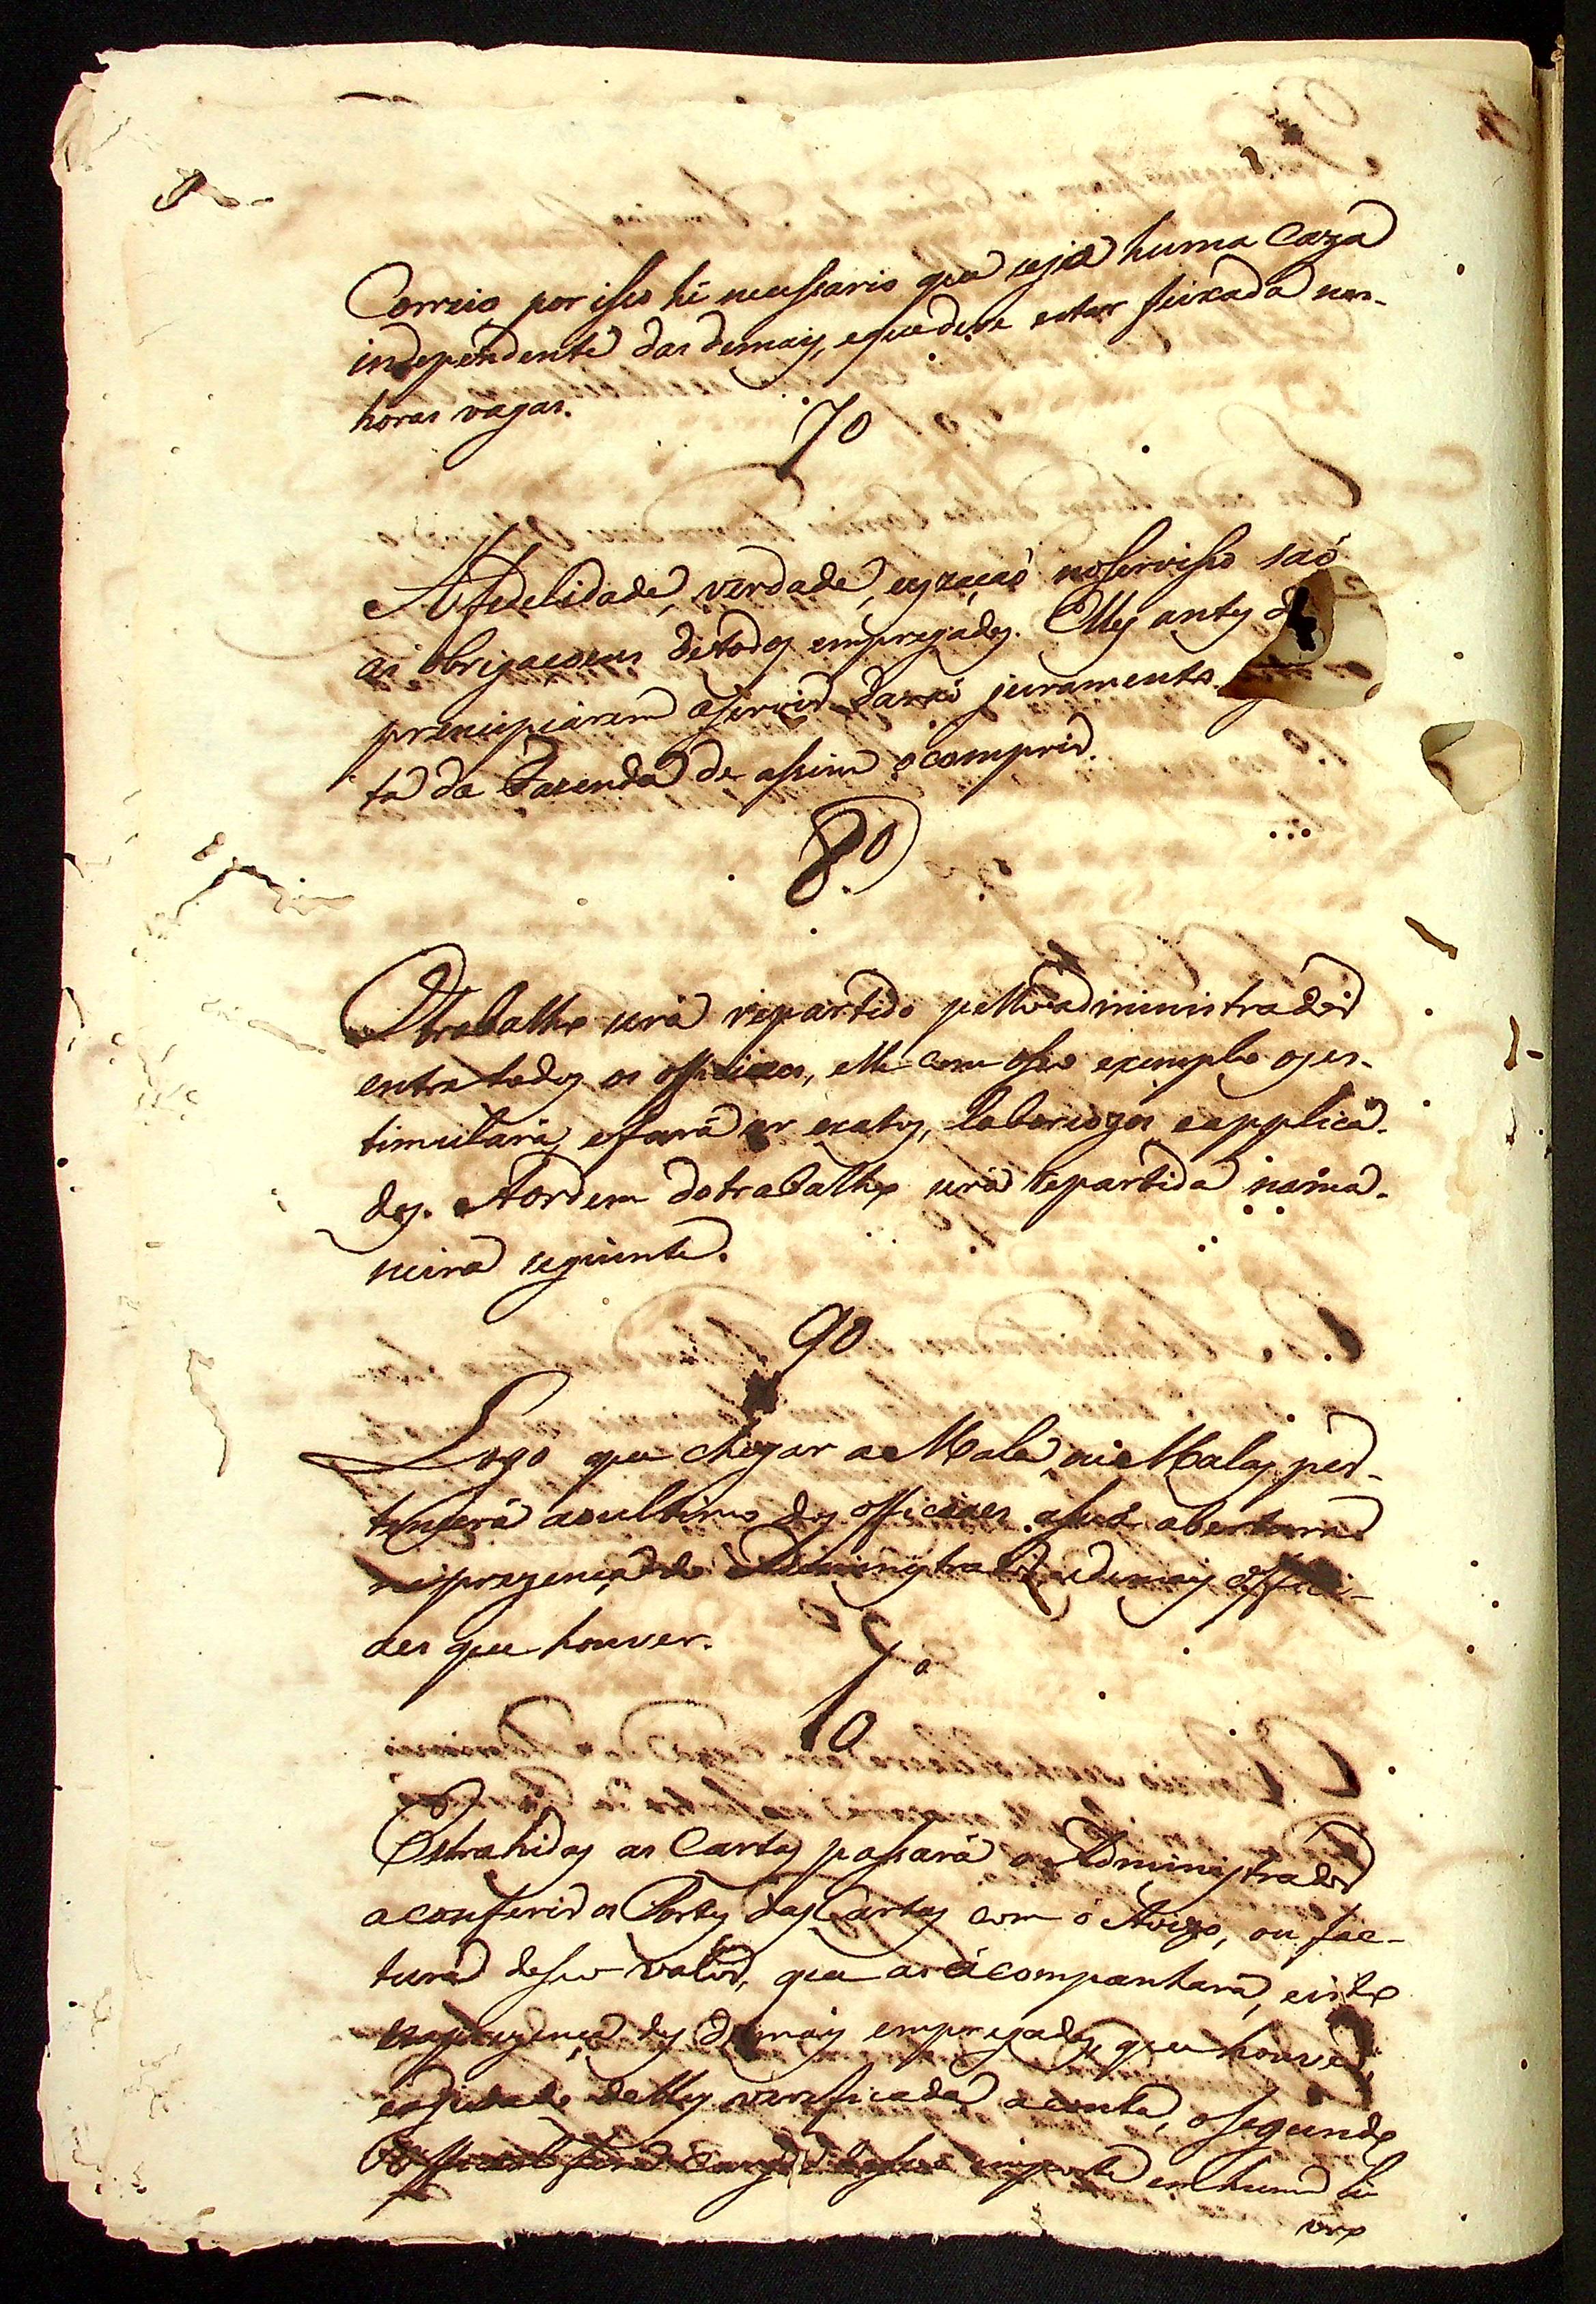 Correio, por isso hé necessario que seja huma Caza
independente das demais, e que deve estar feixada nas
horas vagas.
7º
A fidelidade, verdade, e gração no servisso saó
as obrigaçoens de todos empregados. Elles antes d
principiarem a servir daraó juramento
ta da Fazenda de assim o comprir.
8º
O trabalho será repartido pello administrador
entre todos os officiaes, elle com o seo exemplo os es-
timulará, e fará ser exatos, laboriozos, e applica-
dos. A ordem do trabalho será repartida na ma-
neira seguinte.
9º
Logo que chegar a Mala, ou Malas per-
tenserá ao ultimo dos officiaes a sua abertura
na prezença do Administrador, e demais offici-
aes que houver.
10º
Extrahidas as Cartas passará o Administrador
a conferir os Portes das Cartas com o Avizo, ou fac-
tura do seu valor, que as acompanhará, e isto
na prezença dos demais empregados, que houver,
e ajudado delles, verificada a conta, o segundo
Official fará Carga da sua importe em hum Li
vro